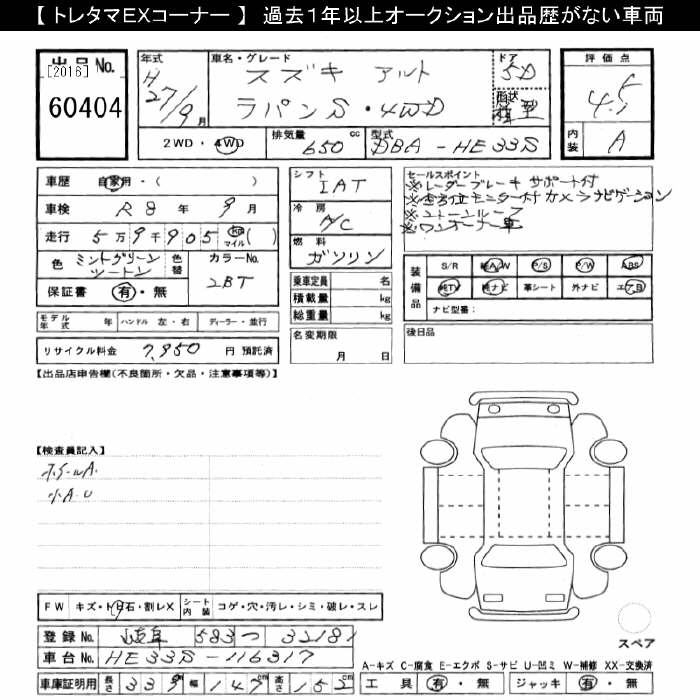 【 トレタマEXコーナー 】 過去1年以上オークション出品歴がない車両
出品 No.
[2016]
60404
年式
H
27/9月
車名・グレード
スズキ アルト
ラパンS・4WD
ドア
5D
形状
箱型
2WD・4WD
排気量 650 cc
型式 DBA-HE33S
評価点
4.5
内装 A
車歴 自家用・( )
車検 R8 年 9 月
走行 5万9千905 km マイル ( )
色 ミントグリーン ツートン
色替
カラーNo. 2BT
保証書 有・無
シフト IAT
冷房 A/C
燃料 ガソリン
乗車定員 名
積載量 kg
総重量 kg
セールスポイント
※レーダーブレーキ サポート付
※全方位モニター付カメラナビゲーション
※2トーンルーフ
※ワンオーナー車
装備品
S/R 純A/W P/S P/W ABS
純TV 純ナビ 革シート 外ナビ エアB
ナビ型番：
モデル年式 年 ハンドル 左・右 ディーラー・並行
リサイクル料金 7,950 円 預託済
名変期限 月 日
後日品
【出品店申告欄(不良箇所・欠品・注意事項等)】
【検査員記入】
ホイールA.
小A.U
FW キズ・トビ石・割レX
シート内装 コゲ・穴・汚レ・シミ・破レ・スレ
スペア
登録 No. 岐阜 583 つ 32181
車台 No. HE33S-116317
A-キズ C-腐食 E-エクボ S-サビ U-凹ミ W-補修 XX-交換済
車庫証明用 長さ 339 cm 幅 147 cm 高さ 152 cm
工具 有・無 ジャッキ 有・無